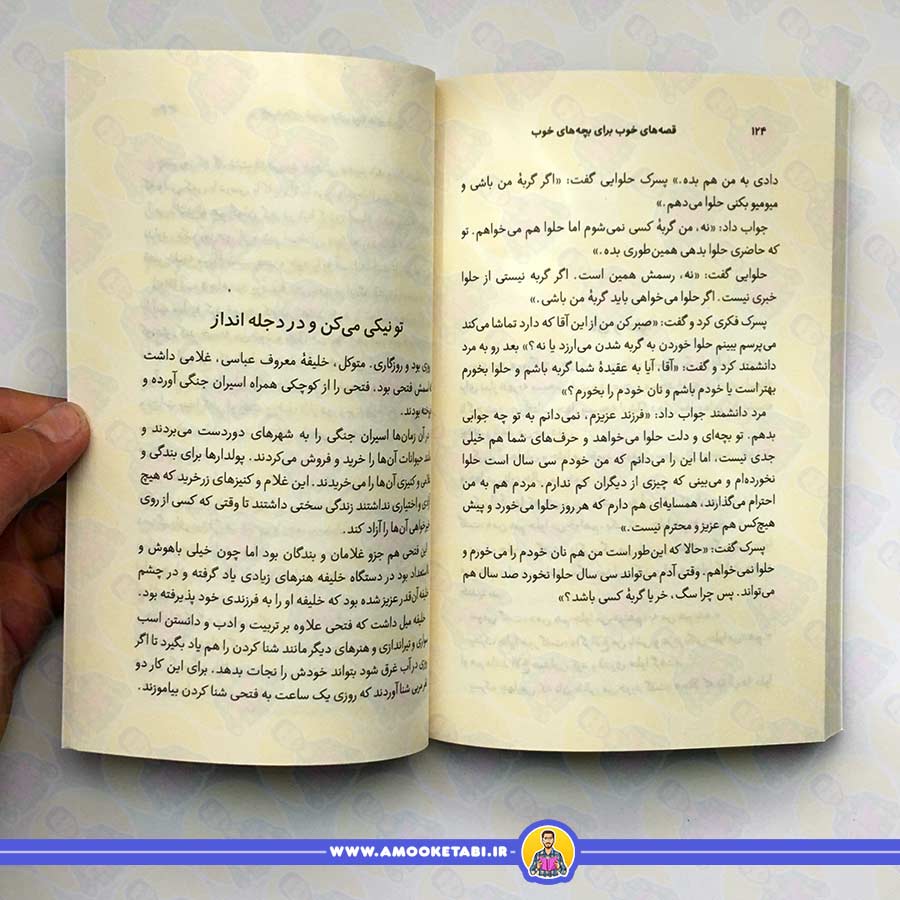 ۱۲۴
قصه‌های خوب برای بچه‌های خوب
دادی به من هم بده.» پسرک حلوایی گفت: «اگر گربهٔ من باشی و
میومیو بکنی حلوا می‌دهم.»
جواب داد: «نه، من گربهٔ کسی نمی‌شوم اما حلوا هم می‌خواهم. تو
که حاضری حلوا بدهی همین‌طوری بده.»
حلوایی گفت: «نه، رسمش همین است. اگر گربه نیستی از حلوا
خبری نیست. اگر حلوا می‌خواهی باید گربهٔ من باشی.»
پسرک فکری کرد و گفت: «صبر کن من از این آقا که دارد تماشا می‌کند
می‌پرسم ببینم حلوا خوردن به گربه شدن می‌ارزد یا نه؟» بعد رو به مرد
دانشمند کرد و گفت: «آقا، آیا به عقیدهٔ شما گربه باشم و حلوا بخورم
بهتر است یا خودم باشم و نان خودم را بخورم؟»
مرد دانشمند جواب داد: «فرزند عزیزم، نمی‌دانم به تو چه جوابی
بدهم. تو بچه‌ای و دلت حلوا می‌خواهد و حرف‌های شما هم خیلی
جدی نیست، اما این را می‌دانم که من خودم سی سال است حلوا
نخورده‌ام و می‌بینی که چیزی از دیگران کم ندارم. مردم هم به من
احترام می‌گذارند، همسایه‌ای هم دارم که هر روز حلوا می‌خورد و پیش
هیچ‌کس هم عزیز و محترم نیست.»
پسرک گفت: «حالا که این‌طور است من هم نان خودم را می‌خورم و
حلوا نمی‌خواهم. وقتی آدم می‌تواند سی سال حلوا نخورد صد سال هم
می‌تواند. پس چرا سگ، خر یا گربهٔ کسی باشد؟»
تو نیکی می‌کن و در دجله انداز
بود و روزگاری. متوکل، خلیفهٔ معروف عباسی، غلامی داشت
اسمش فتحی بود، فتحی را از کوچکی همراه اسیران جنگی آورده و
بودند.
در آن زمان‌ها اسیران جنگی را به شهرهای دوردست می‌بردند و
حیوانات آن‌ها را خرید و فروش می‌کردند. پولدارها برای بندگی و
و کنیزی آن‌ها را می‌خریدند. این غلام و کنیزهای زرخرید که هیچ
و اختیاری نداشتند زندگی سختی داشتند تا وقتی که کسی از روی
آن‌ها را آزاد کند.
این فتحی هم جزو غلامان و بندگان بود اما چون خیلی باهوش و
بود در دستگاه خلیفه هنرهای زیادی یاد گرفته و در چشم
خلیفه آن‌قدر عزیز شده بود که خلیفه او را به فرزندی خود پذیرفته بود.
خلیفه میل داشت که فتحی علاوه بر تربیت و ادب و دانستن اسب
و تیراندازی و هنرهای دیگر مانند شنا کردن را هم یاد بگیرد تا اگر
در آب غرق شود بتواند خودش را نجات بدهد. برای این کار دو
مربی شنا آوردند که روزی یک ساعت به فتحی شنا کردن بیاموزند.
WWW.AMOOKETABI.IR